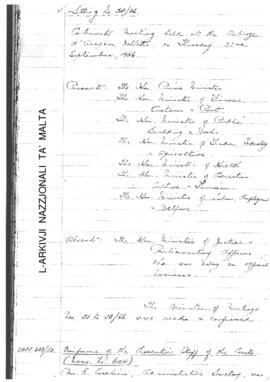 Sitting No 34/66
Cabinet Meeting held at the Auberge
d'Aragon, Valletta on Thursday 22nd
September, 1966
Present: The Hon. Prime Minister
The Hon. Minister of Finance,
Customs & Port
The Hon. Minister of Public
Building & Works
The Hon. Minister of Trade, Industry
& Agriculture
The Hon. Minister of Health
The Hon. Minister of Education
Culture & Tourism
The Hon. Minister of Labour, Employment
& Welfare
Absent: The Hon. Minister of Justice &
Parliamentary Affairs
who was away on official
business.
The Minutes of Meetings
Nos 31 to 33/66 were read & confirmed.
Uniforms of the Executive Staff of the Courts
Mr. E. Administrative Secretary, was
L-ARKIVJI NAZZJONALI TA' MALTA